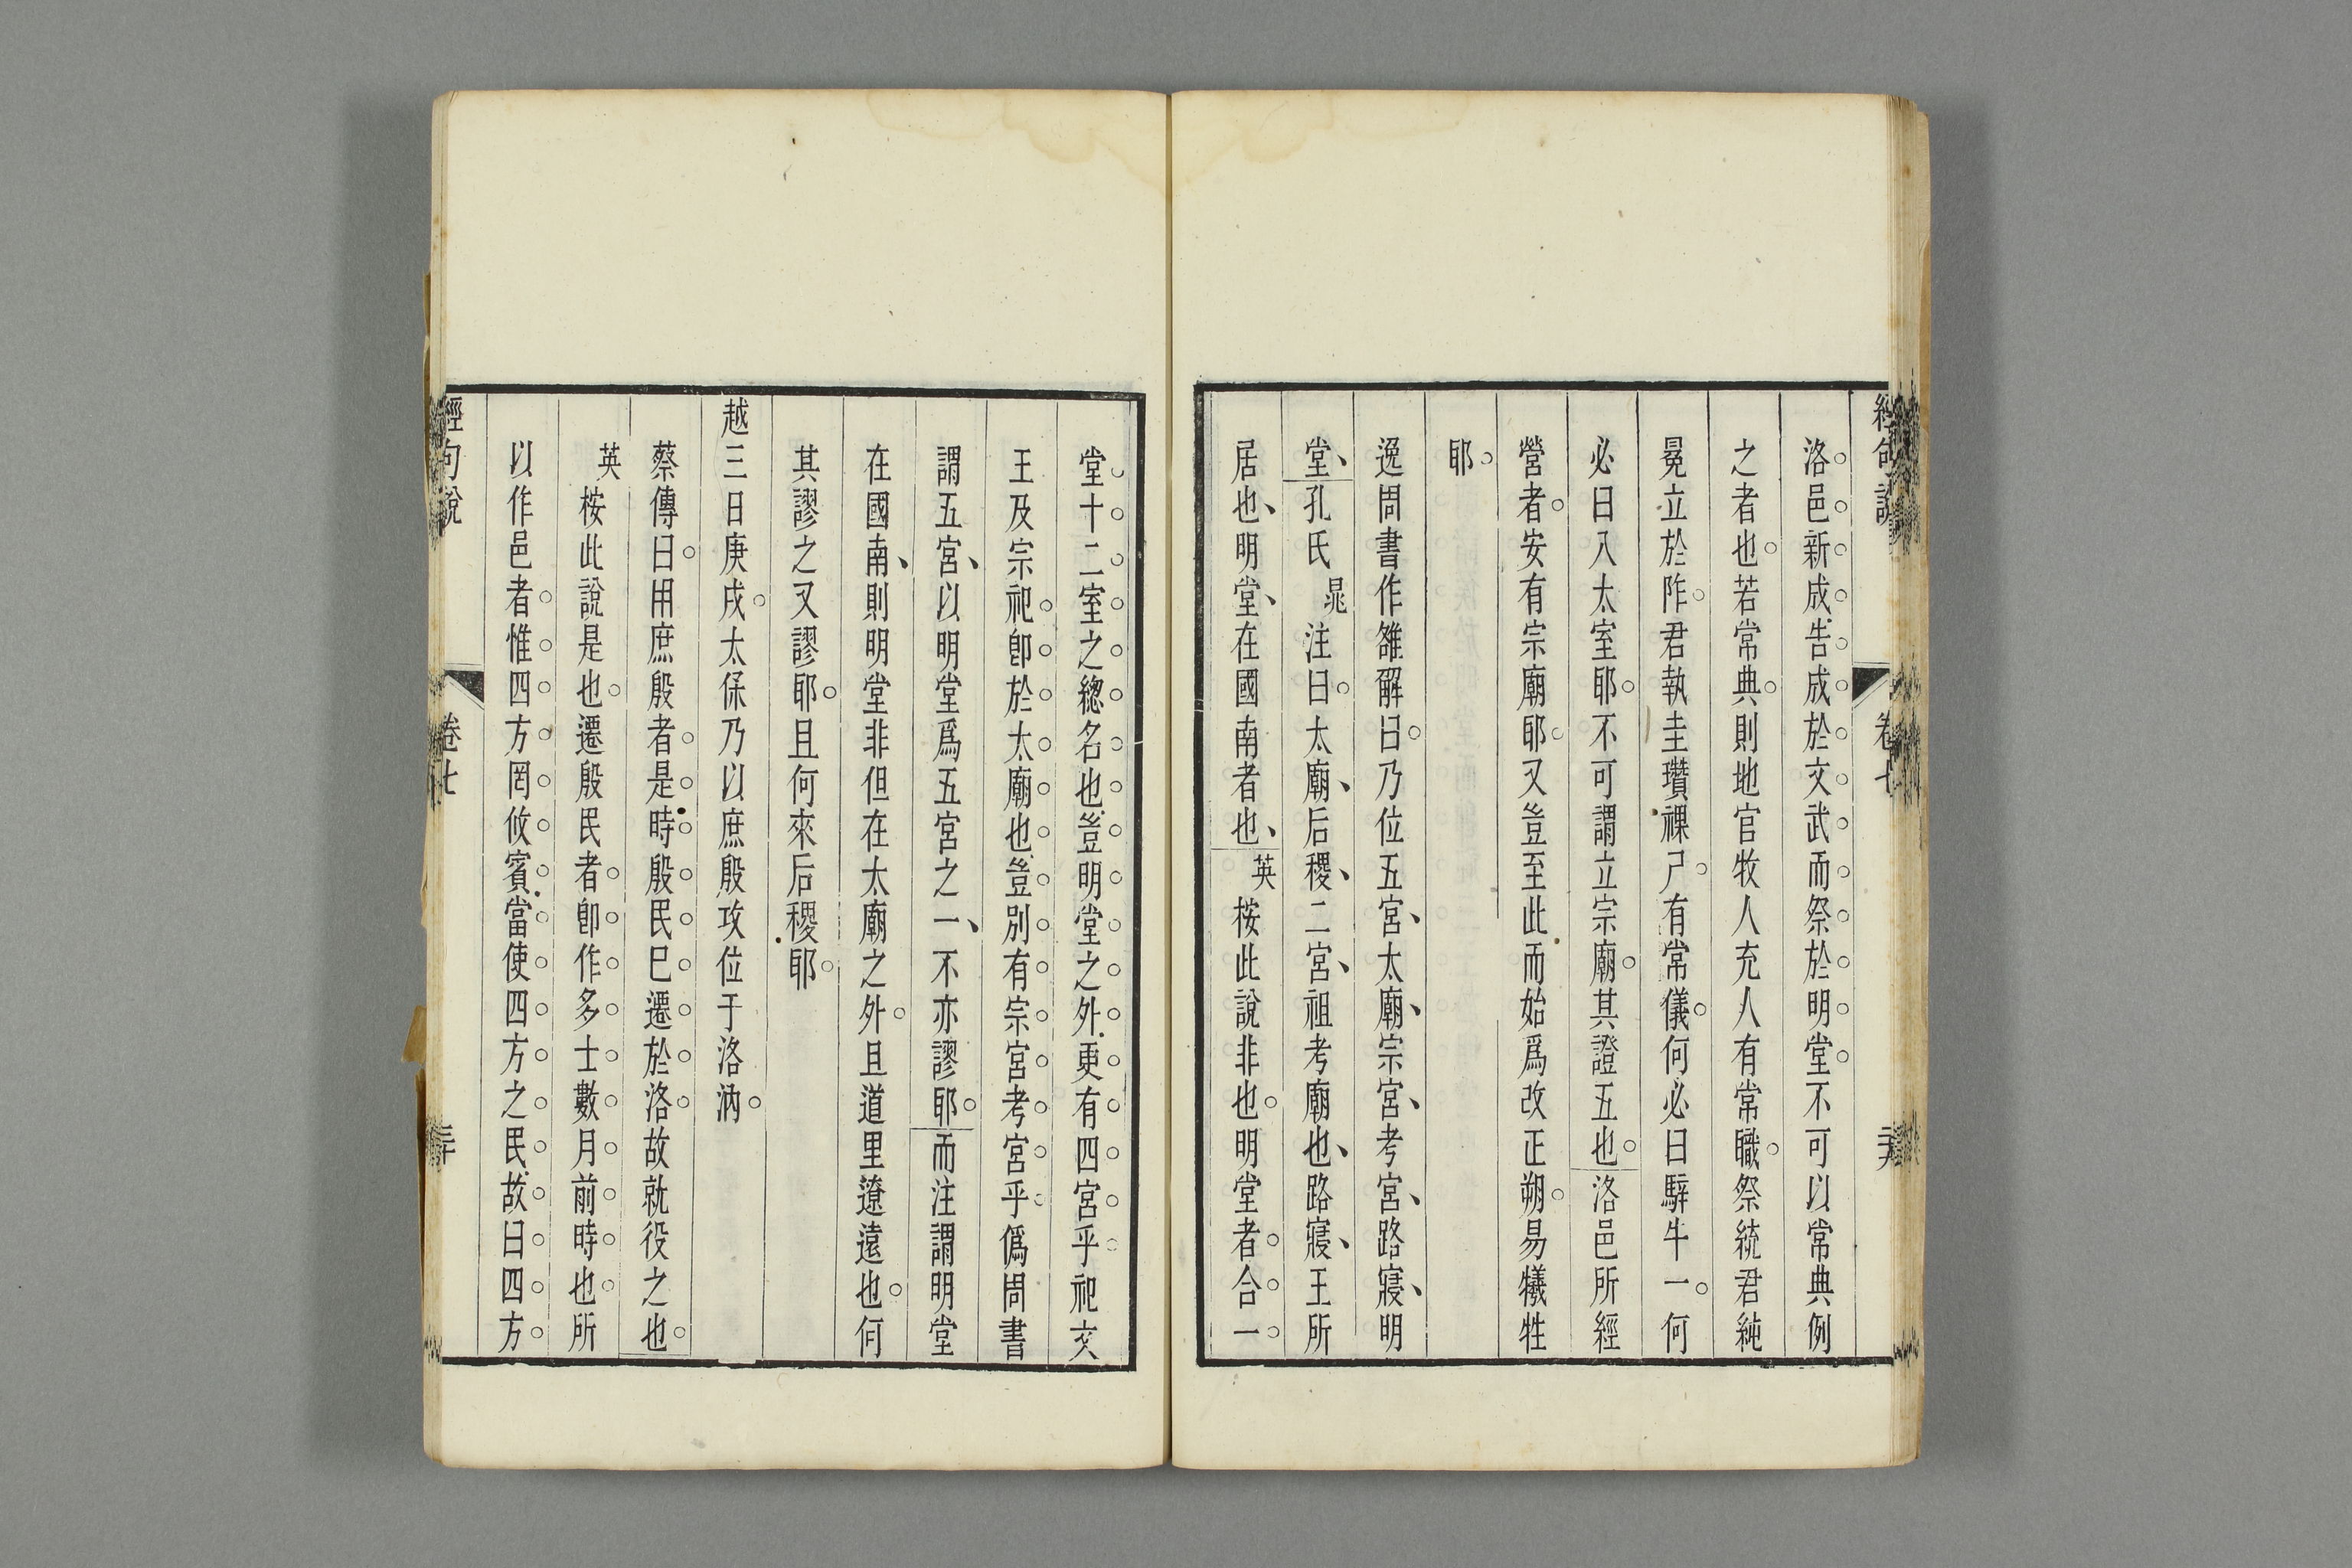 經句說
卷七
二十九
洛邑新成告成於文武而祭於明堂不可以常典例
之者也若常典則地官牧人充人有常職祭統君純
冕立於阼君執圭瓚祼尸有常儀何必曰騂牛一何
必曰入太室耶不可謂立宗廟其證五也洛邑所經
營者安有宗廟耶又豈至此而始爲改正朔易犧牲
耶
逸周書作雒解曰乃位五宮太廟宗宮考宮路寢明
堂孔氏晁注曰太廟后稷二宮祖考廟也路寢王所
居也明堂在國南者也英桉此說非也明堂者合一
堂十二室之總名也豈明堂之外更有四宮乎祀文
王及宗祀卽於太廟也豈別有宗宮考宮乎僞周書
謂五宮以明堂爲五宮之一不亦謬耶而注謂明堂
在國南則明堂非但在太廟之外且道里遼遠也何
其謬之又謬耶且何來后稷耶
越三日庚戌太保乃以庶殷攻位于洛汭
蔡傳曰用庶殷者是時殷民巳遷於洛故就役之也
英桉此說是也遷殷民者卽作多士數月前時也所
以作邑者惟四方罔攸賓當使四方之民故曰四方
經句說
卷七
三十